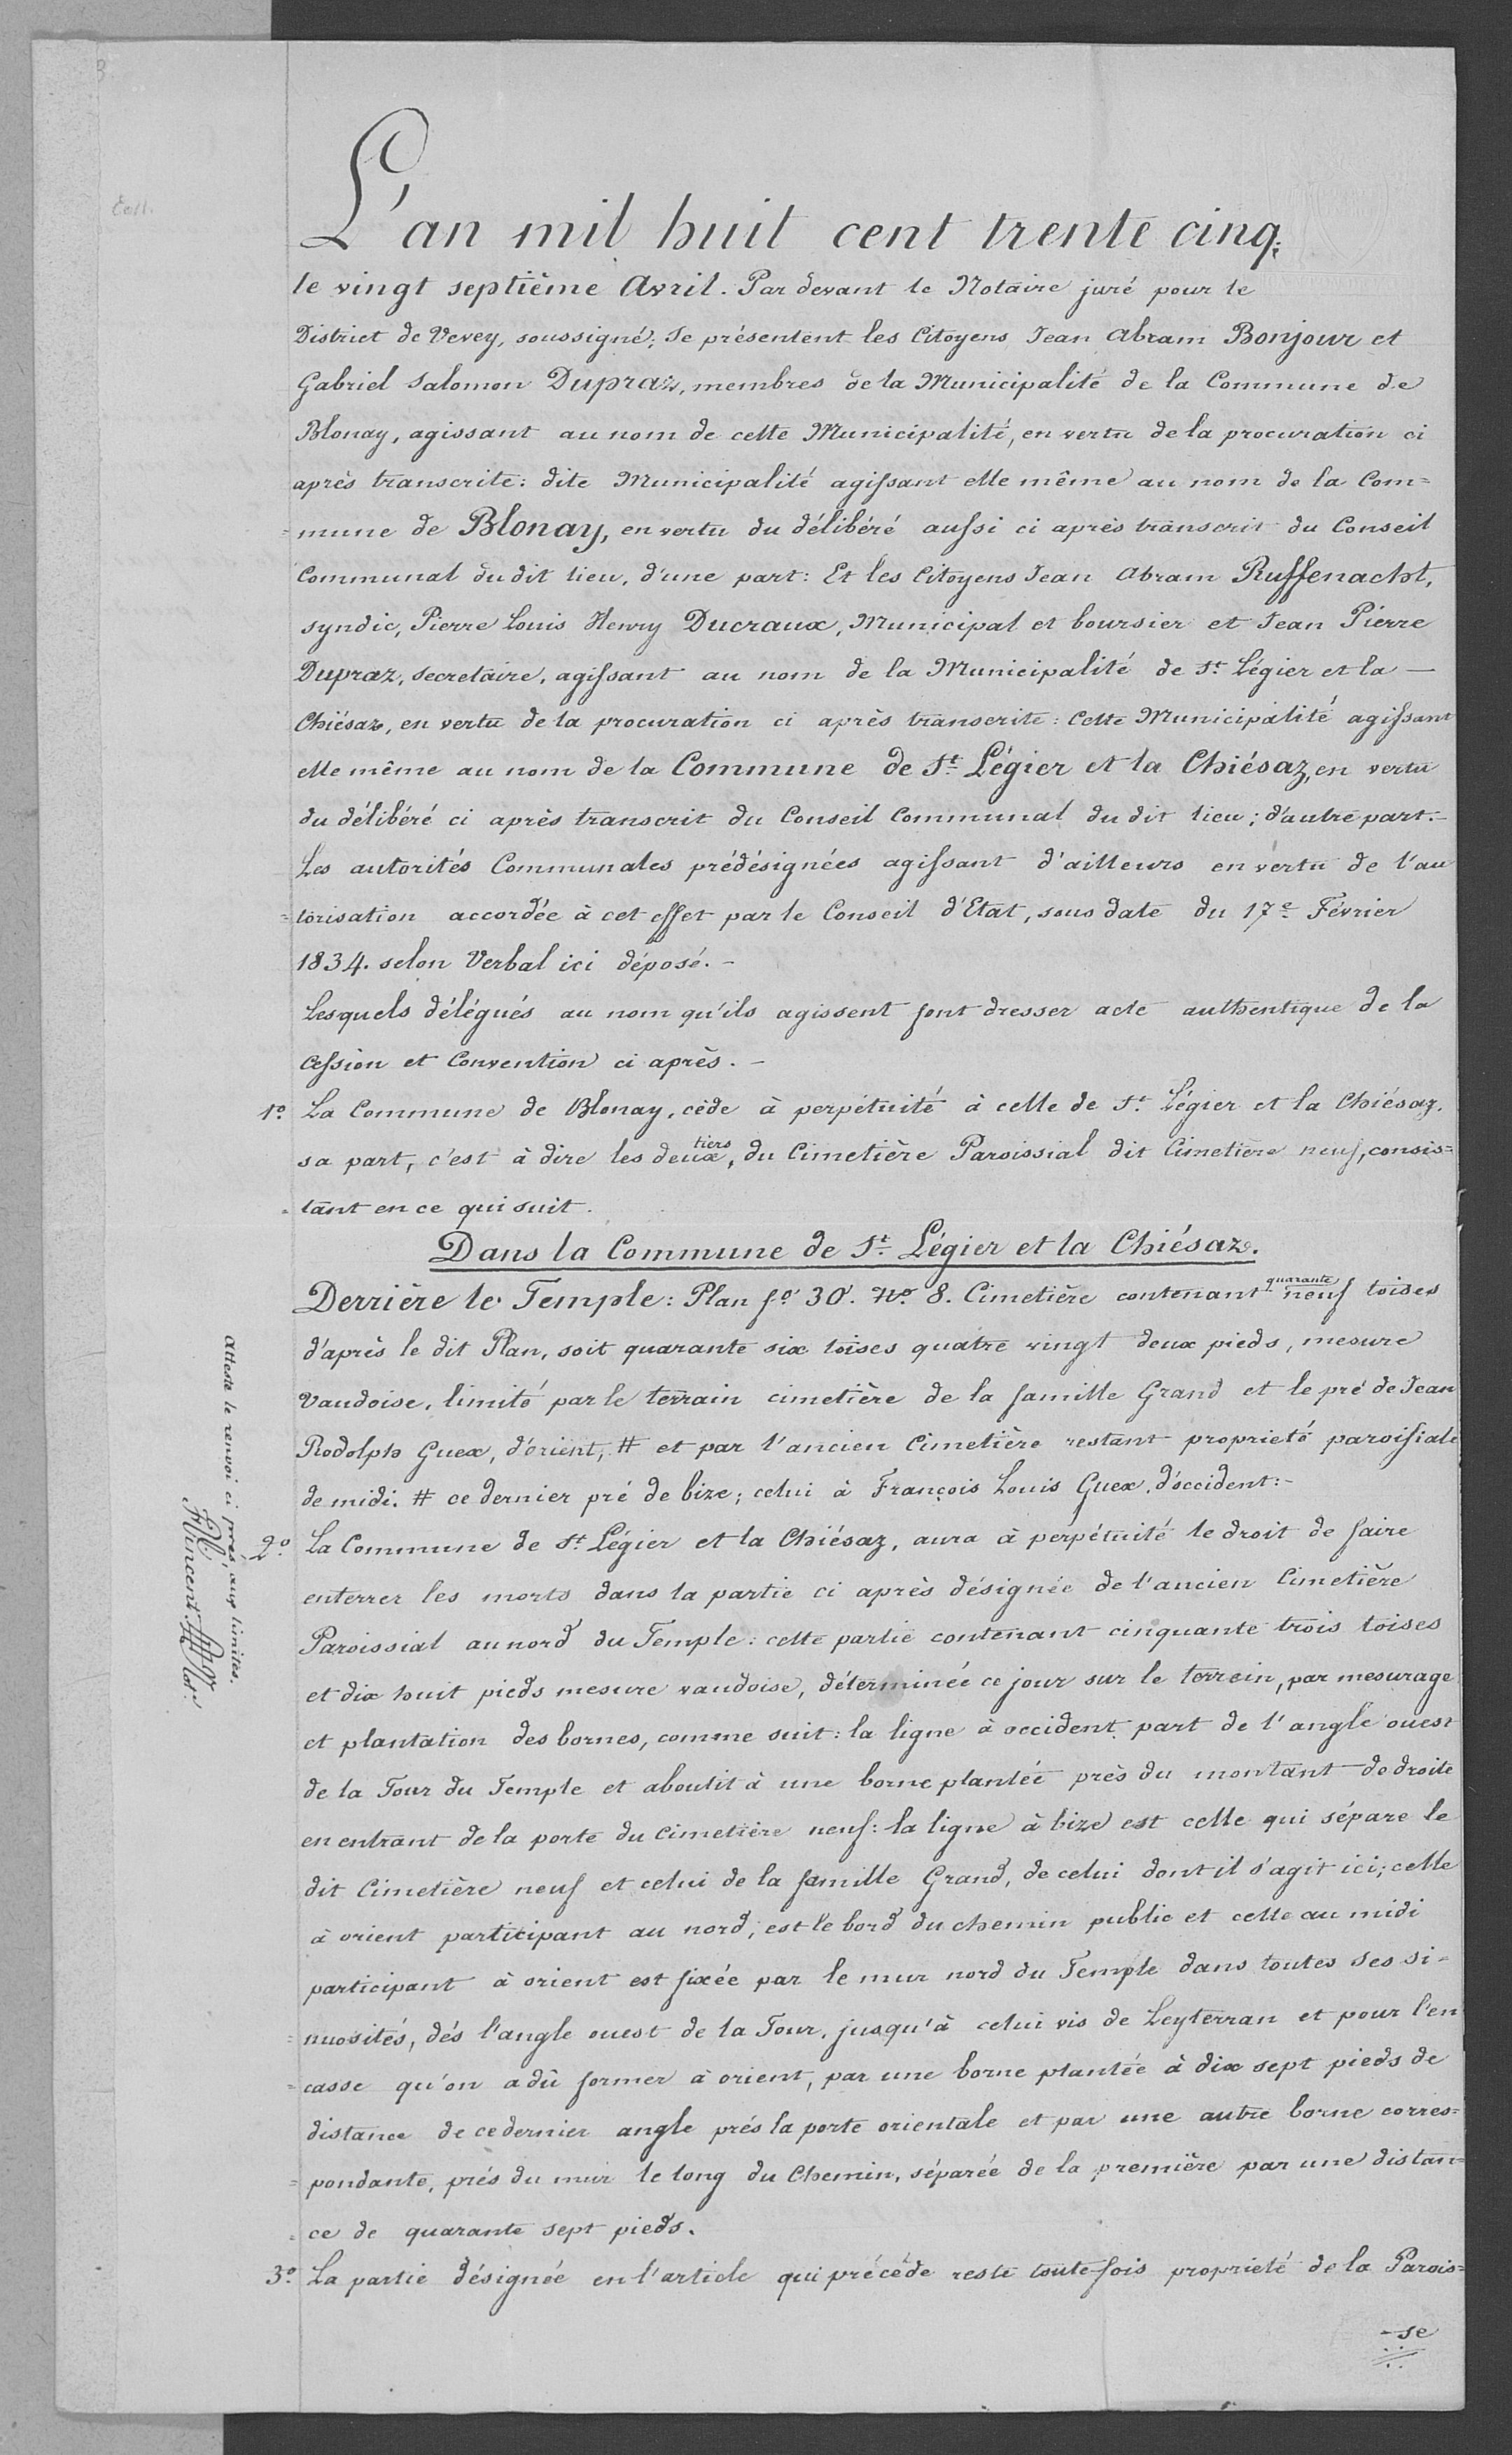 L'an mil huit cent trente cinq,
le vingt septième Avril. Par devant le Notaire juré pour le
District de Vevey, soussigné; Se présentent les Citoyens Jean Abram Bonjour et
Gabriel Salomon Dupraz, membres de la Municipalité de la Commune de
Blonay, agissant au nom de cette Municipalité, en vertu de la procuration ci
après transcrite: dite Municipalité agissant elle même au nom de la Com=
=mune de Blonay, en vertu du délibéré aussi ci après transcrit du Conseil
Communal du dit lieu, d'une part: Et les Citoyens Jean Abram Ruffenacht,
syndic, Pierre Louis Henry Ducraux, Municipal et boursier et Jean Pierre
Dupraz, secretaire, agissant au nom de la Municipalité de St. Légier et la —
Chiésaz, en vertu de la procuration ci après transcrite: Cette Municipalité agissant
elle même au nom de la Commune de St. Légier et la Chiésaz, en vertu
du délibéré ci après transcrit du Conseil Communal du dit lieu; d'autre part.-
Les autorités Communales prédésignées agissant d'ailleurs en vertu de l'au
=torisation accordée à cet effet par le Conseil d'Etat, sous date du 17e. Février
1834. selon Verbal ici déposé.-
Lesquels délégués au nom qu'ils agissent font dresser acte authentique de la
Cession et Convention ci après.-
1o. La Commune de Blonay, cède à perpétuité à celle de St. Légier et la Chiésaz,
sa part, c'est à dire les deux tiers, du Cimetière Paroissial dit Cimetière neuf, consis=
=tant en ce qui suit.
Dans la Commune de St. Légier et la Chiésaz.
Derrière le Temple: Plan fo. 30. No. 8. Cimetière contenant quarante neuf toises
d'après le dit Plan, soit quarante six toises quatre vingt deux pieds, mesure
Vaudoise, limité par le terrain cimetière de la famille Grand et le pré de Jean
Rodolph Guex, d'orient, # et par l'ancien Cimetière restant proprieté paroissiale
de midi. # ce dernier pré de bize; celui à François Louis Guex, d'occident:-
Atteste le renvoi ci près, aux limites.
Vincent Not.
2o. La Commune de St. Légier et la Chiésaz, aura à perpétuité le droit de faire
enterrer les morts dans la partie ci après désignée de l'ancien Cimetière
Paroissial au nord du Temple: cette partie contenant cinquante trois toises
et dix huit pieds mesure vaudoise, déterminée ce jour sur le terrein, par mesurage
et plantation des bornes, comme suit: la ligne à occident part de l'angle ouest
de la Tour du Temple et aboutit à une borne plantée près du montant de droite
en entrant de la porte du Cimetière neuf: la ligne à bize est celle qui sépare le
dit Cimetière neuf et celui de la famille Grand, de celui dont il s'agit ici; celle
à orient participant au nord, est le bord du chemin public et celle au midi
participant à orient est fixée par le mur nord du Temple dans toutes ses si-
=nuosités, dès l'angle ouest de la Tour, jusqu'à celui vis de Leyterran et pour l'en
=casse qu'on a dû former à orient, par une borne plantée à dix sept pieds de
distance de ce dernier angle près la porte orientale et par une autre borne corres=
=pondante, près du mur le long du Chemin, séparée de la première par une distan=
=ce de quarante sept pieds.
3o. La partie désignée en l'article qui précède reste toutefois proprieté de la Parois=
-se